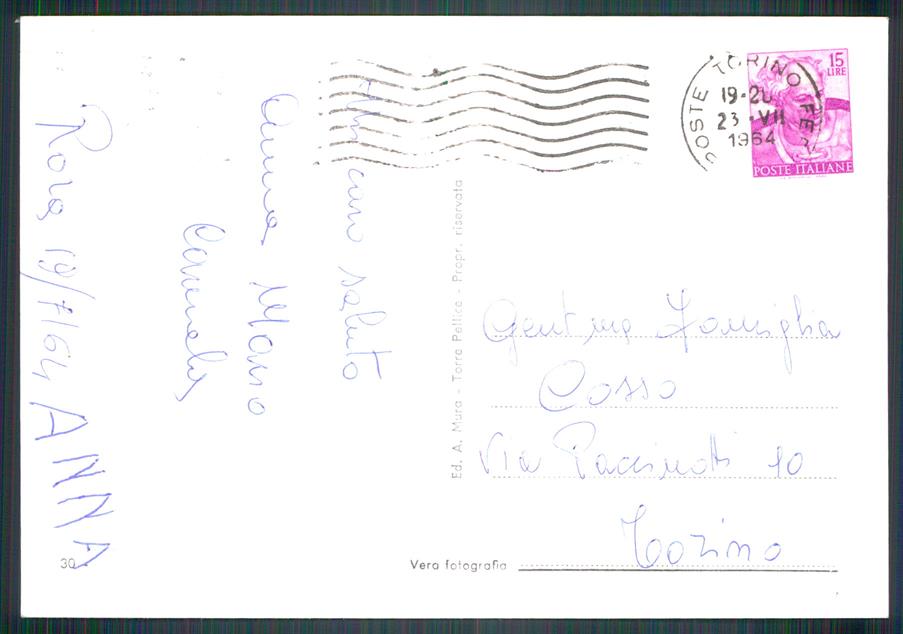 Un caro saluto
Anna Mario
Carmela
Rorà 19/7/64 ANNA
30
Ed. A. Mura - Torre Pellice - Propr. riservata
Vera fotografia
POSTE TORINO FER
19-20
23 · VII
1964
15
LIRE
POSTE ITALIANE
Gent.ma Famiglia
Cosso
Via Paccinotti 10
Torino